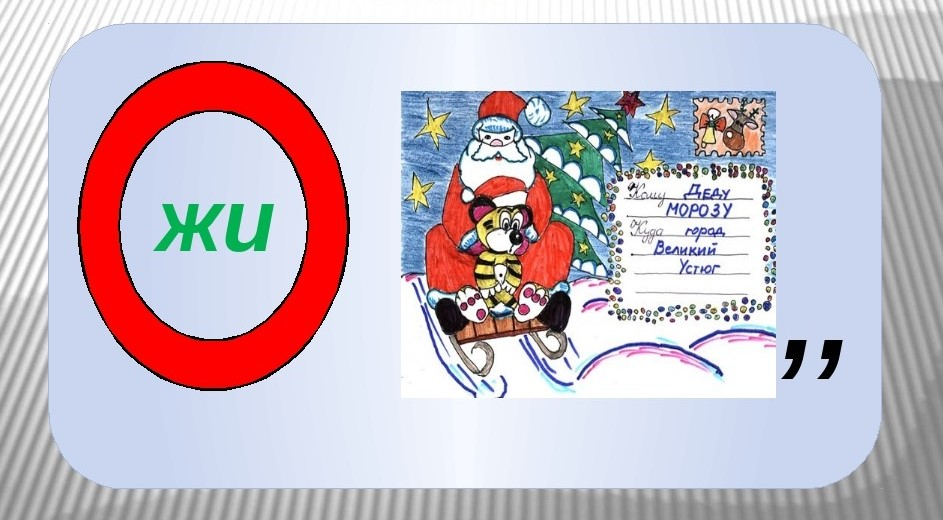 жи
Кому Деду
Морозу
Куда город
Великий
Устюг
,,